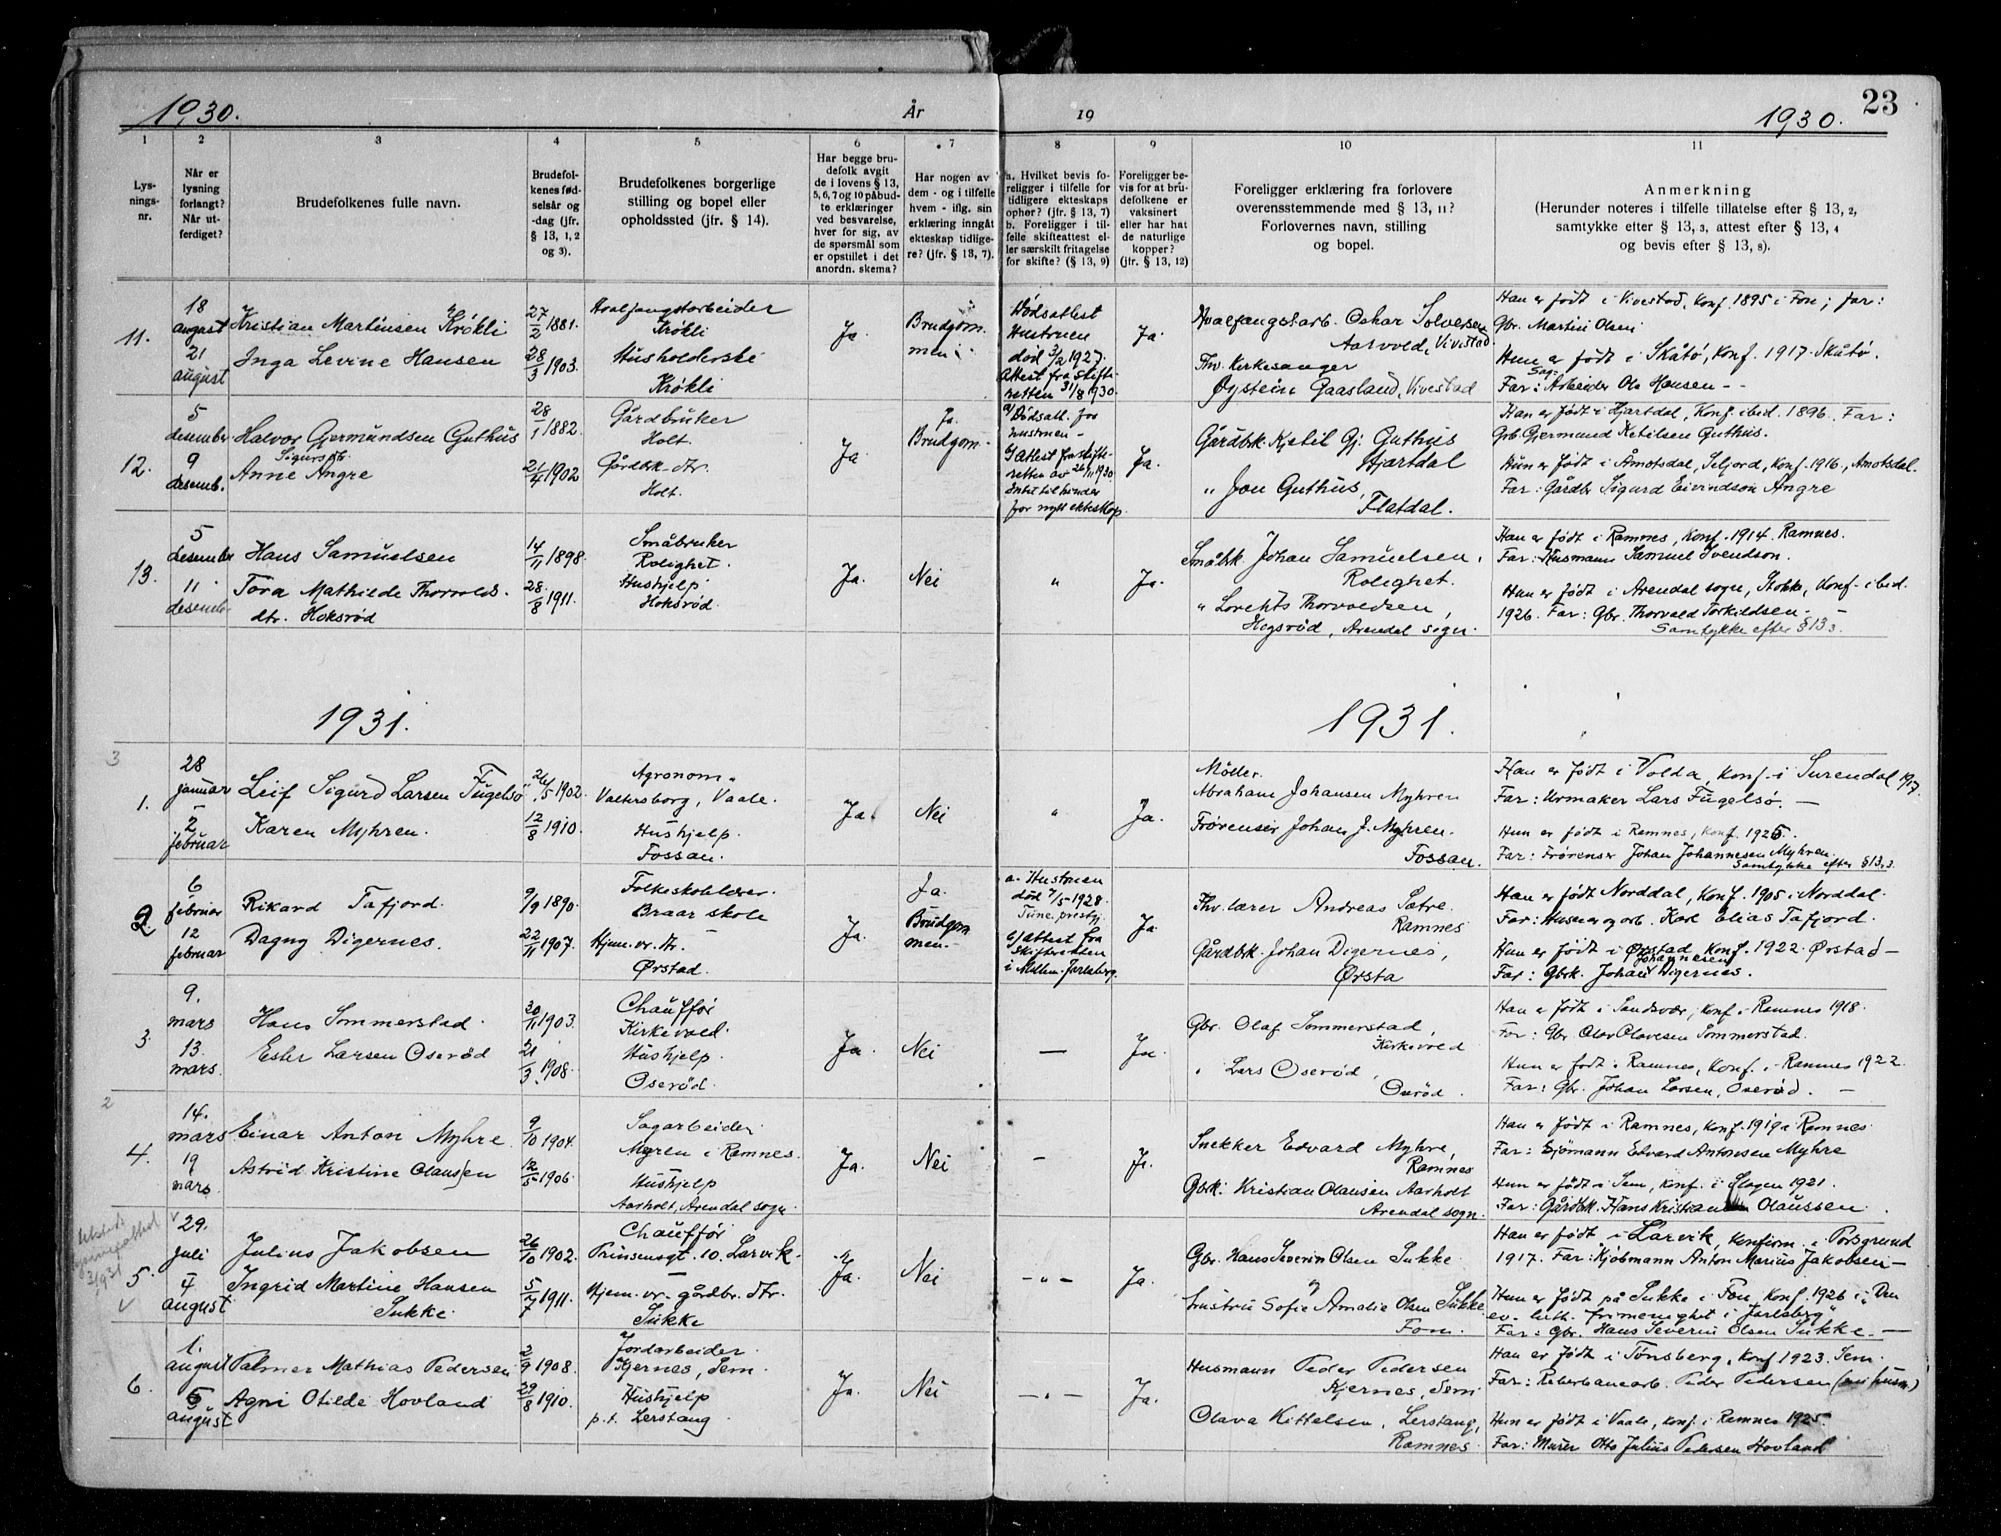 1930.
År
19
1930.
23
1
2
3
4
5
6
7
8
9
10
11
Lys-
nings-
nr.
Når er
lysning
forlangt?
Når ut-
ferdiget?
Brudefolkenes fulle navn.
Brudefol-
kenes fød-
selsår og
-dag (jfr.
§ 13, 1, 2
og 3).
Brudefolkenes borgerlige
stilling og bopel eller
opholdssted (jfr. § 14).
Har begge bru-
defolk avgit
de i lovens § 13,
5, 6, 7 og 10 påbud-
te erklæringer
ved besvarelse,
hver for sig, av
de spørsmål som
er opstillet i det
anordn. skema?
Har nogen av
dem - og i tilfelle
hvem - iflg. sin
erklæring inngått
ekteskap tidlige-
re? (jfr. § 13, 7).
a. Hvilket bevis fo-
religger i tilfelle for
tidligere ekteskaps
opher? (jfr. § 13, 7)
b. Foreligger i til-
felle skifteattest el-
ler særskilt fritagelse
for skifte? (§ 13, 9)
Foreligger be-
vis for at bru-
defolkene er
vaksinert
eller har hat
de naturlige
kopper?
(jfr. § 13, 12)
Foreligger erklæring fra forlovere
overensstemmende med § 13, 11?
Forlovernes navn, stilling
og bopel.
Anmerkning
(Herunder noteres i tilfelle tillatelse efter § 13, 2,
samtykke efter § 13, 3, attest efter § 13, 4
og bevis efter § 13, 8).
11.
18
august
21
august
Kristian Martinsen Krökli
Inga Levine Hansen
27/2 1881.
28/3 1903.
Hvalfangstarbeider
Krökli
Husholderske
Krökli
Ja.
Brudgom
men
Dødsattest
Hustruen
død 3/2 1927.
Attest fra skifte-
retten 31/8 1930.
Ja.
Hvalfangstarb. Oskar Solversen
Aasvold, Vivestad
Fhv. Kirkesanger
Øystein Gaasland, Vivestad
Han er født i Vivestad, konf. 1895 i Fon; far:
Gbr. Martin Olsen
Hun er født i Skåtø, Konf. 1917. Skåtø.
Far: Sag-Arbeider Ole Hansen - -
12.
5
desember
9
desemb.
Halvor Gjermundsen Guthus
Anne Sigursdtr. Angre
28/1 1882.
21/4 1902
Gårdbruker
Holt.
Gårdbk. dtr.
Holt.
Ja
Ja.
Brudgom.
a/ Dødsatt. for
hustruen -
b/ Attest fra skifte-
retten av 26/11 1930
Intet til hinder
for nytt ekteskap.
Ja.
Gårdbk. Kjetil Gj. Guthus
Hjartdal
" Jon Guthus,
Flatdal.
Han er født i Hjartdal, Konf. ibid. 1896. Far:
Grb. Gjermund Ketilsen Guthus.
Hun er født i Åmotsdal, Seljord, konf. 1916, Amotsdal.
Far: Gårdbr Sigurd Eivindson Angre
13.
5
desember
11
desemb.
Hans Samuelsen
Tora Mathilde Thorvolds-
dtr. Hoksrød
14/11 1898.
28/8 1911.
Småbruker
Rolighet.
Hushjelp
Hoksrød.
Ja.
Nei
"
Ja.
Småbk. Johan Samuelsen,
Rolighet.
" Lorents Thorvaldsen,
Hogsrød, Arendal sogn.
Han er født i Ramnes, Konf. 1914. Ramnes.
Far: Husmann Samuel Svendson.
Hun er født i Arendal sogn, Stokke, Konf. ibid.
1926. Far: Gbr. Thorvald Torkildsen. -
Samtykke efter § 13 3.
1931.
1931.
3
1.
28
januar
2
februar
Leif Sigurd Larsen Fugelsö
Karen Myhren.
24/5 1902.
12/8 1910.
Agronom.
Valtersborg, Vaale.
Hushjelp.
Fossan.
Ja.
Nei
"
Ja.
Møller.
Abraham Johansen Myhren
Frørenser Johan J. Myhren.
Fossan.
Han er født i Volda, konf. i Surendal 1917.
Far: Urmaker Lars Fugelsø. -
Hun er født i Ramnes, konf. 1925.
Far: Frørenser Johan Johannesen Myhren.
Samtykke efter § 13, 3.
2.
6
februar
12
februar
Rikard Tafjord.
Dagny Digernes.
9/9 1890.
22/11 1907.
Folkeskolelærer.
Braar skole
Hjem. vr. dr.
Ørstad.
Ja.
Ja.
Brudgom
men-
a. Hustruen
død 7/5 1928.
Tune prestgj.
b/ attest fra
Skifteretten
i Mellem-Jarlsberg.
Ja.
Fhv. lærer Andreas Sætre.
Ramnes
Gårdbk. Johan Digernes,
Ørsta
Han er født Norddal, Konf. 1905 i Norddal.
Far: Huseier og arb. Karl Elias Tafjord.
Hun er født i Ørstad, Konf. 1922. Ørstad-
Far: Gbrk. Johan Johannesen Digernes.
3.
9.
mars
13.
mars.
Hans Sommerstad.
Ester Larsen Oserød
30/11 1903.
21/3 1908.
Chaufför
Kirkevold.
Hushjelp.
Oserød.
Ja.
Nei
-
Ja.
Gbr. Olaf Sommerstad,
Kirkevold
" Lars Oserød,
Oserød.
Han er født i Sandsvær, konf. i Ramnes 1918.
Far: Gbr Olav Olavesen Sommerstad.
Hun er født i Ramnes, Konf. i Ramnes 1922.
Far: Gbr. Johan Larsen, Oserød. -
2
4.
14.
mars
19
mars.
Einar Anton Myhre.
Astrid Kristine Olaussen
9/10 1904.
12/5 1906.
Sagarbeider
Myren i Ramnes.
Hushjelp
Aarholt, Arendal sogn.
Ja.
Nei
-
Ja.
Snekker Edvard Myhre,
Ramnes
Gbrk. Kristian Olausen Aarholt
Arendal sogn.
Han er født i Ramnes, Konf. 1919 i Ramnes
Far: Sjömann Edvard Antonsen Myhre
Hun er født i Sem, konf. i Slagen 1921.
Far: Gårdbk. Hans Kristian Olaussen.
5.
29.
juli
4
august
Julius Jakobsen
Ingrid Martine Hansen
Sukke.
26/10 1902.
5/7 1911.
Chaufför
Prinsensgt. 10. Larvik.
Hjem. vr. gårdbr. dtr.
Sukke
Ja.
Nei
- " -
Ja.
Gbr. Hans Severin Olsen Sukke
Hustru Sofie Amalie Olsen Sukke
Fon.
Han er født i Larvik, konfirm. i Porsgrund
1917. Far: Kjøbmann Anton Marius Jakobsen -
Hun er født på Sukke i Fon, konf. 1926 i "Den
ev. luth. frimenighet i Jarlsberg"
Far: Gbr. Hans Severin Olsen Sukke. -
6.
1.
august
5
august
Palmer Mathias Pedersen
Agni Otilde Hovland
2/9 1908.
29/8 1910.
Jordarbeider
Kjernes, Sem.
Hushjelp
p.t. Lerstang
Ja.
Nei
- " -
Ja.
Husmann Peder Pedersen
Kjernes, Sem
Olava Kittelsen, Lerstang,
Ramnes.
Han er født i Tønsberg, konf. 1923. Sem.
Far: Reberbanearb. Peder Pedersen
Hun er født i Vaale, konf. i Ramnes 1925.
Far: Murer Otto Julius Pedersen Hovland